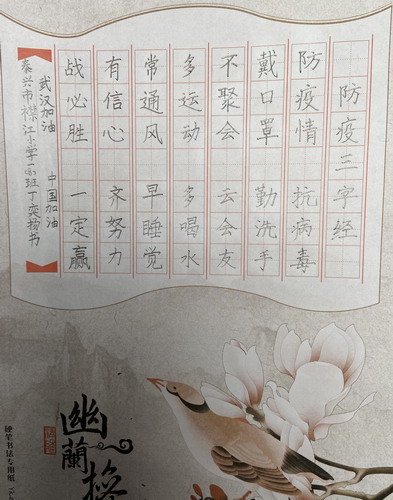 防疫三字经
防疫情 抗病毒
戴口罩 勤洗手
不聚会 云会友
多运动 多喝水
常通风 早睡觉
有信心 齐努力
战必胜 一定赢
武汉加油 中国加油
泰兴市襟江小学一(8)班丁奕扬书
幽蘭
硬笔书法专用纸